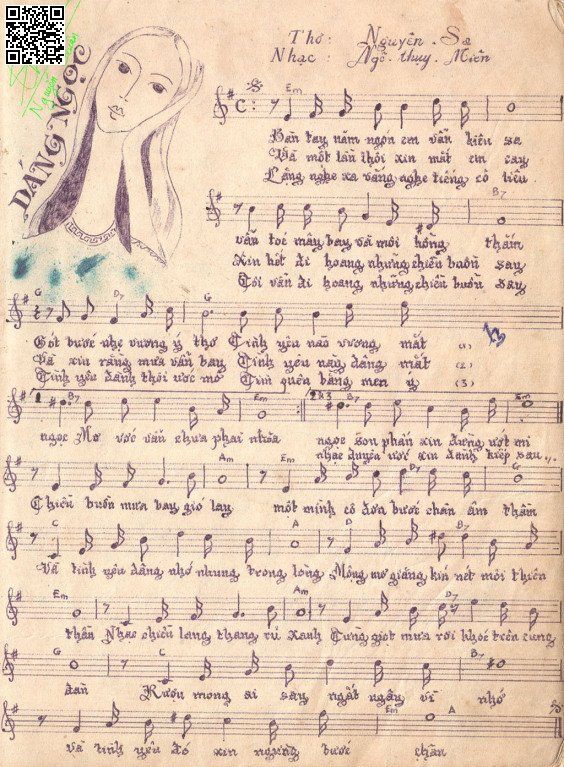 Thơ: Nguyên. Sa
Nhạc: Ngô. thuy. Miên
DÁNG NGỌC
C: Em
Bàn tay năm ngón em vẫn kiêu sa
Và một lần thôi xin mắt em cay
Lắng nghe xa vắng nghe tiếng cô liêu
B7
vẫn tóc mây bay và môi hồng thắm
Xin hết đi hoang những chiều buồn say
Tôi vẫn đi hoang những chiều buồn say
G D7 G
Gót bước nhẹ vương ý thơ Tình yêu nào vương mắt (1)
Và xin rằng mưa vẫn bay Tình yêu này dâng mắt (2)
Tình yêu đành thôi ước mơ Tìm quên bằng men ý (3)
1. B7 Em 2&3 B7 Em
ngọc Mơ ước vẫn chưa phai nhòa ngọc son phấn xin đừng ướt mi
nhạc duyên ước xin dành kiếp sau
Em Am Em G
Chiều buồn mưa bay gió lay một mình cô đơn bước chân âm thầm
C Am D B7
Và tình yêu dâng nhớ nhung trong lòng Mộng mơ giăng kín nét môi thiên
Em C Am D B7
thần Nhạc chiều lang thang rũ xanh Cung giọt mưa rơi khóc trên cung
G C B7
đàn Rượu mong ai say ngất ngây vì nhớ
Em A
Và tình yêu đó xin ngừng bước chân